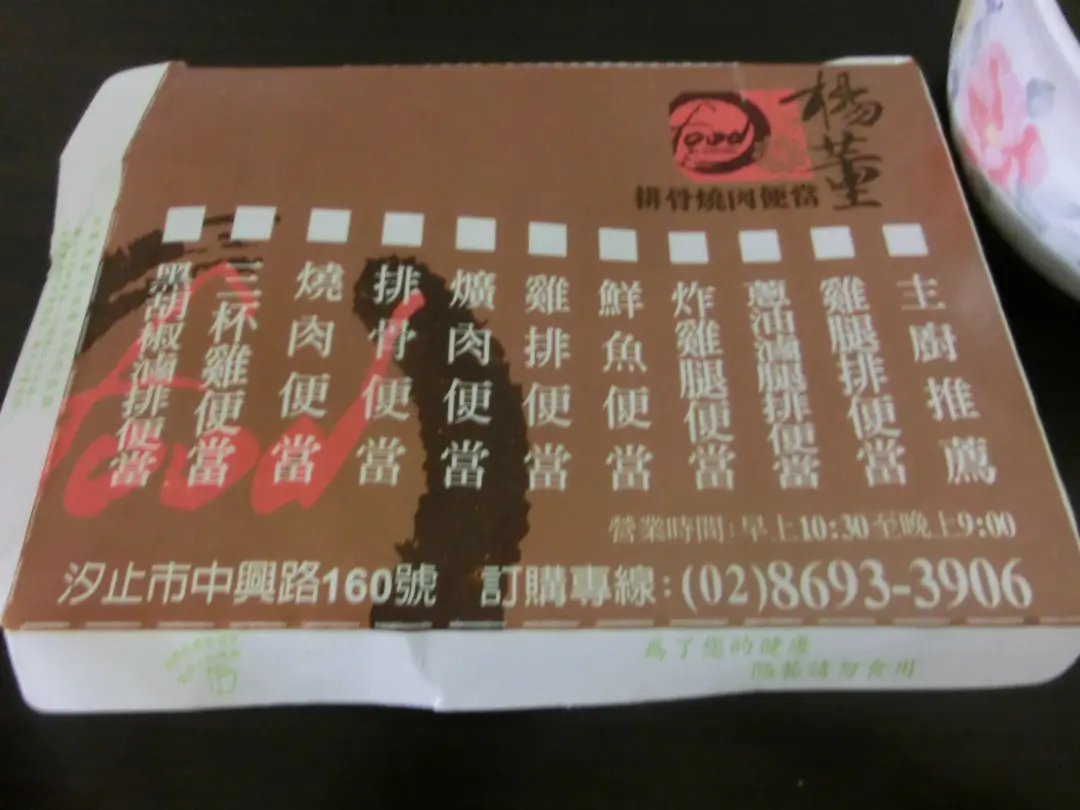 food
楊董
排骨燒肉便當
主廚推薦
雞腿排便當
蔥油滷腿排便當
炸雞腿便當
鮮魚便當
雞排便當
爌肉便當
排骨便當
燒肉便當
三杯雞便當
黑胡椒滷排便當
food
營業時間:早上10:30至晚上9:00
汐止市中興路160號 訂購專線:(02)8693-3906
為了您的健康
隔餐請勿食用